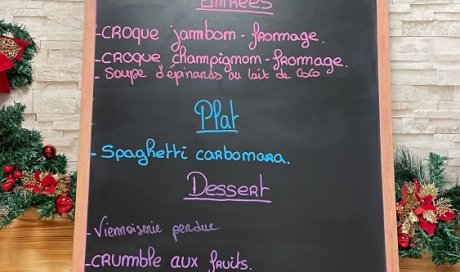 Entrées
- CROQUE jambom - fromage.
- CROQUE champignom - fromage.
- Soupe d'épinards au lait de coco
Plat
- Spaghetti carbomara.
Dessert
- Viennoiserie perdue
- CRUMBLE aux fruits.